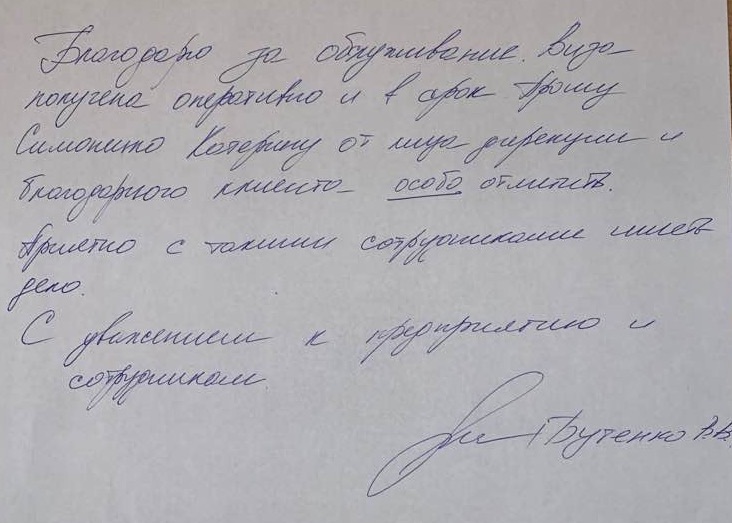 Благодарю за обслуживание. Виза
получена оперативно и в срок Прошу
Симонитко Катерину от лица дирекции и
благодарного клиента особо отметить.
Приятно с такими сотрудниками иметь
дело.
С уважением к предприятию и
сотрудникам.
Бутенко В.В.